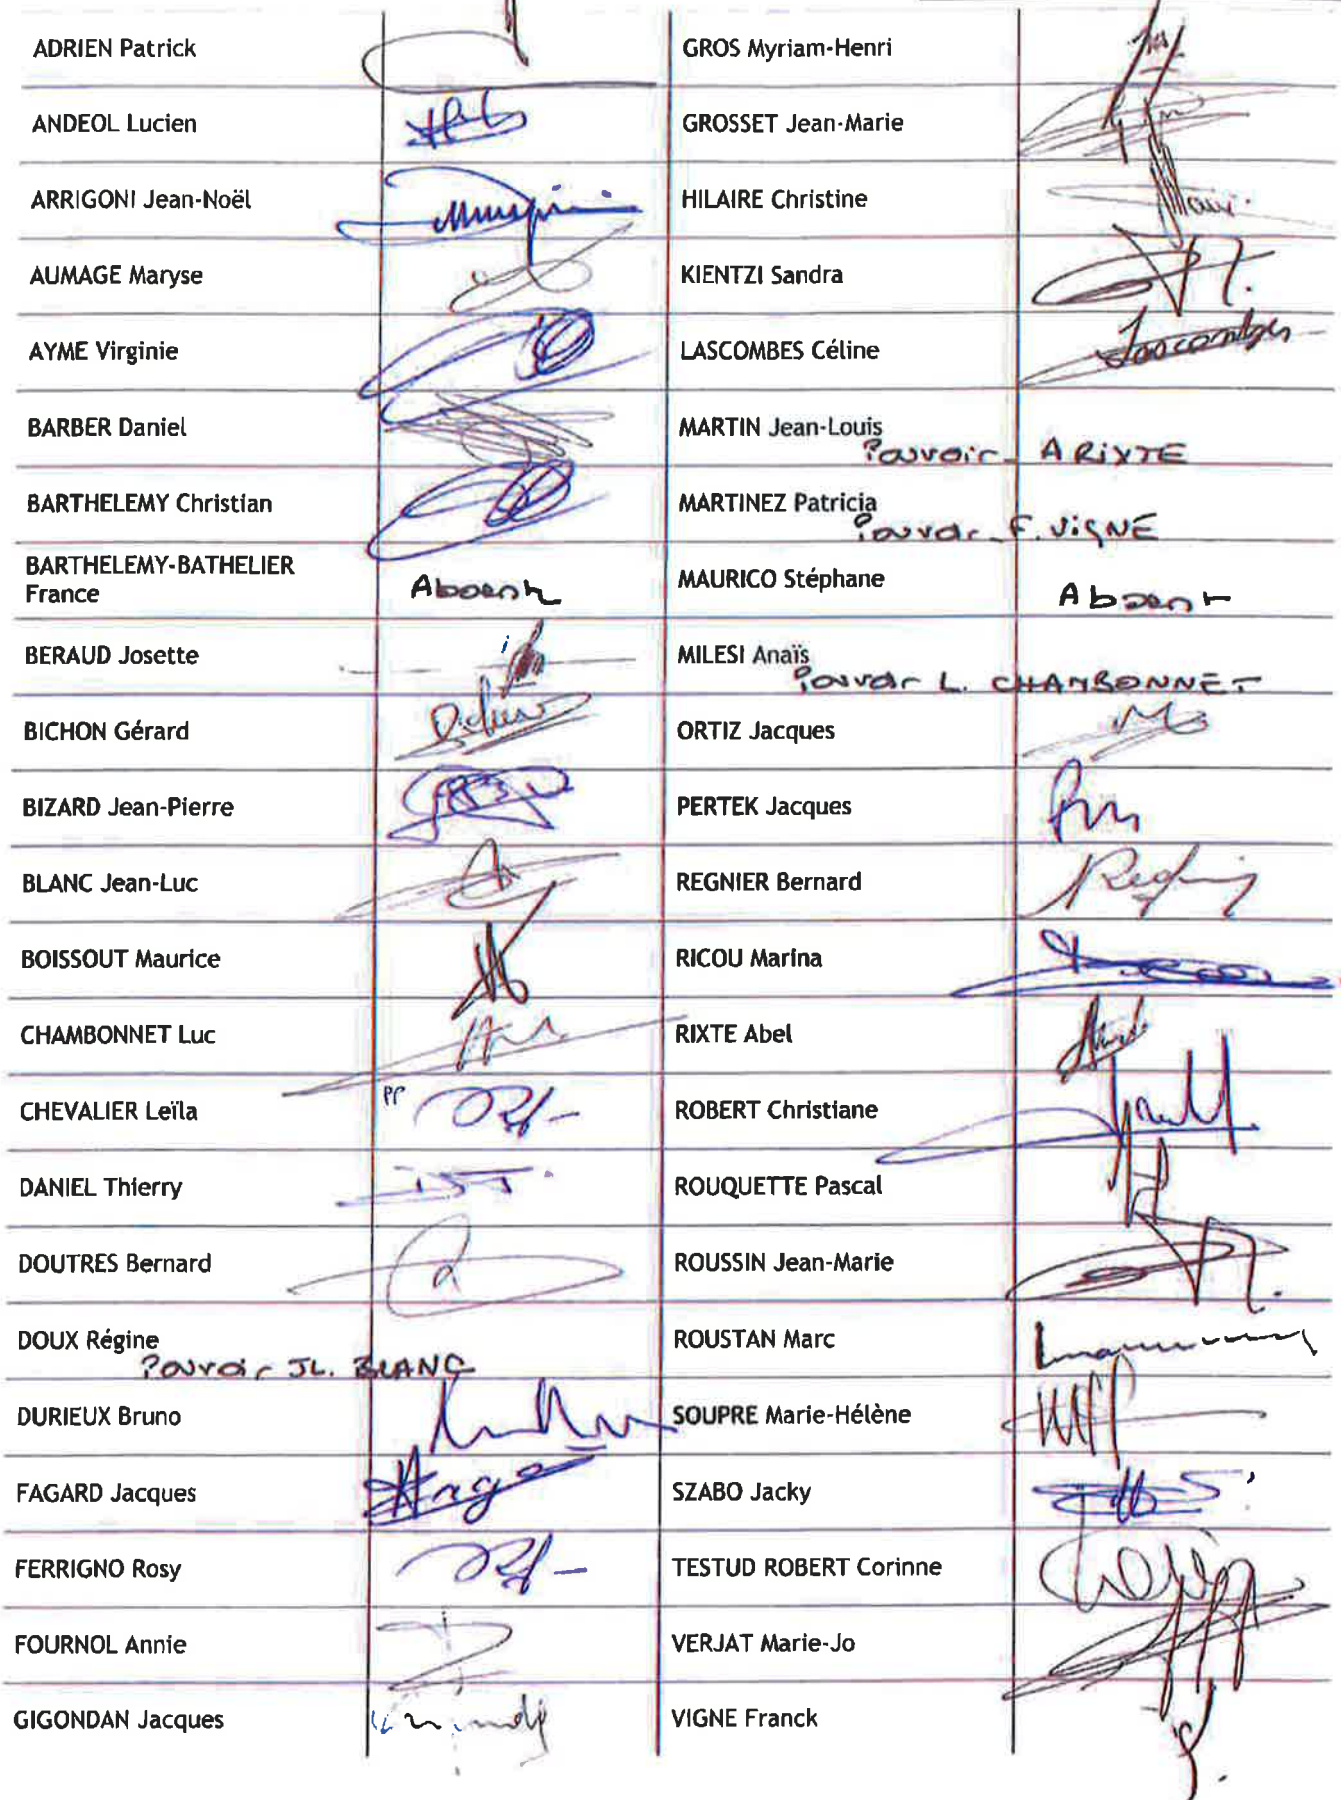 ADRIEN Patrick
GROS Myriam-Henri
ANDEOL Lucien
GROSSET Jean-Marie
ARRIGONI Jean-Noël
HILAIRE Christine
AUMAGE Maryse
KIENTZI Sandra
AYME Virginie
LASCOMBES Céline
Lascombes
BARBER Daniel
MARTIN Jean-Louis
Pouvoir A RIXTE
BARTHELEMY Christian
MARTINEZ Patricia
Pouvoir F. VIGNE
BARTHELEMY-BATHELIER
France
Absent
MAURICO Stéphane
Absent
BERAUD Josette
MILESI Anaïs
Pouvoir L. CHAMBONNET
BICHON Gérard
ORTIZ Jacques
BIZARD Jean-Pierre
PERTEK Jacques
BLANC Jean-Luc
REGNIER Bernard
BOISSOUT Maurice
RICOU Marina
CHAMBONNET Luc
RIXTE Abel
CHEVALIER Leïla
PP
ROBERT Christiane
DANIEL Thierry
ROUQUETTE Pascal
DOUTRES Bernard
ROUSSIN Jean-Marie
DOUX Régine
Pouvoir JL. BLANC
ROUSTAN Marc
DURIEUX Bruno
SOUPRE Marie-Hélène
FAGARD Jacques
SZABO Jacky
FERRIGNO Rosy
TESTUD ROBERT Corinne
FOURNOL Annie
VERJAT Marie-Jo
GIGONDAN Jacques
VIGNE Franck